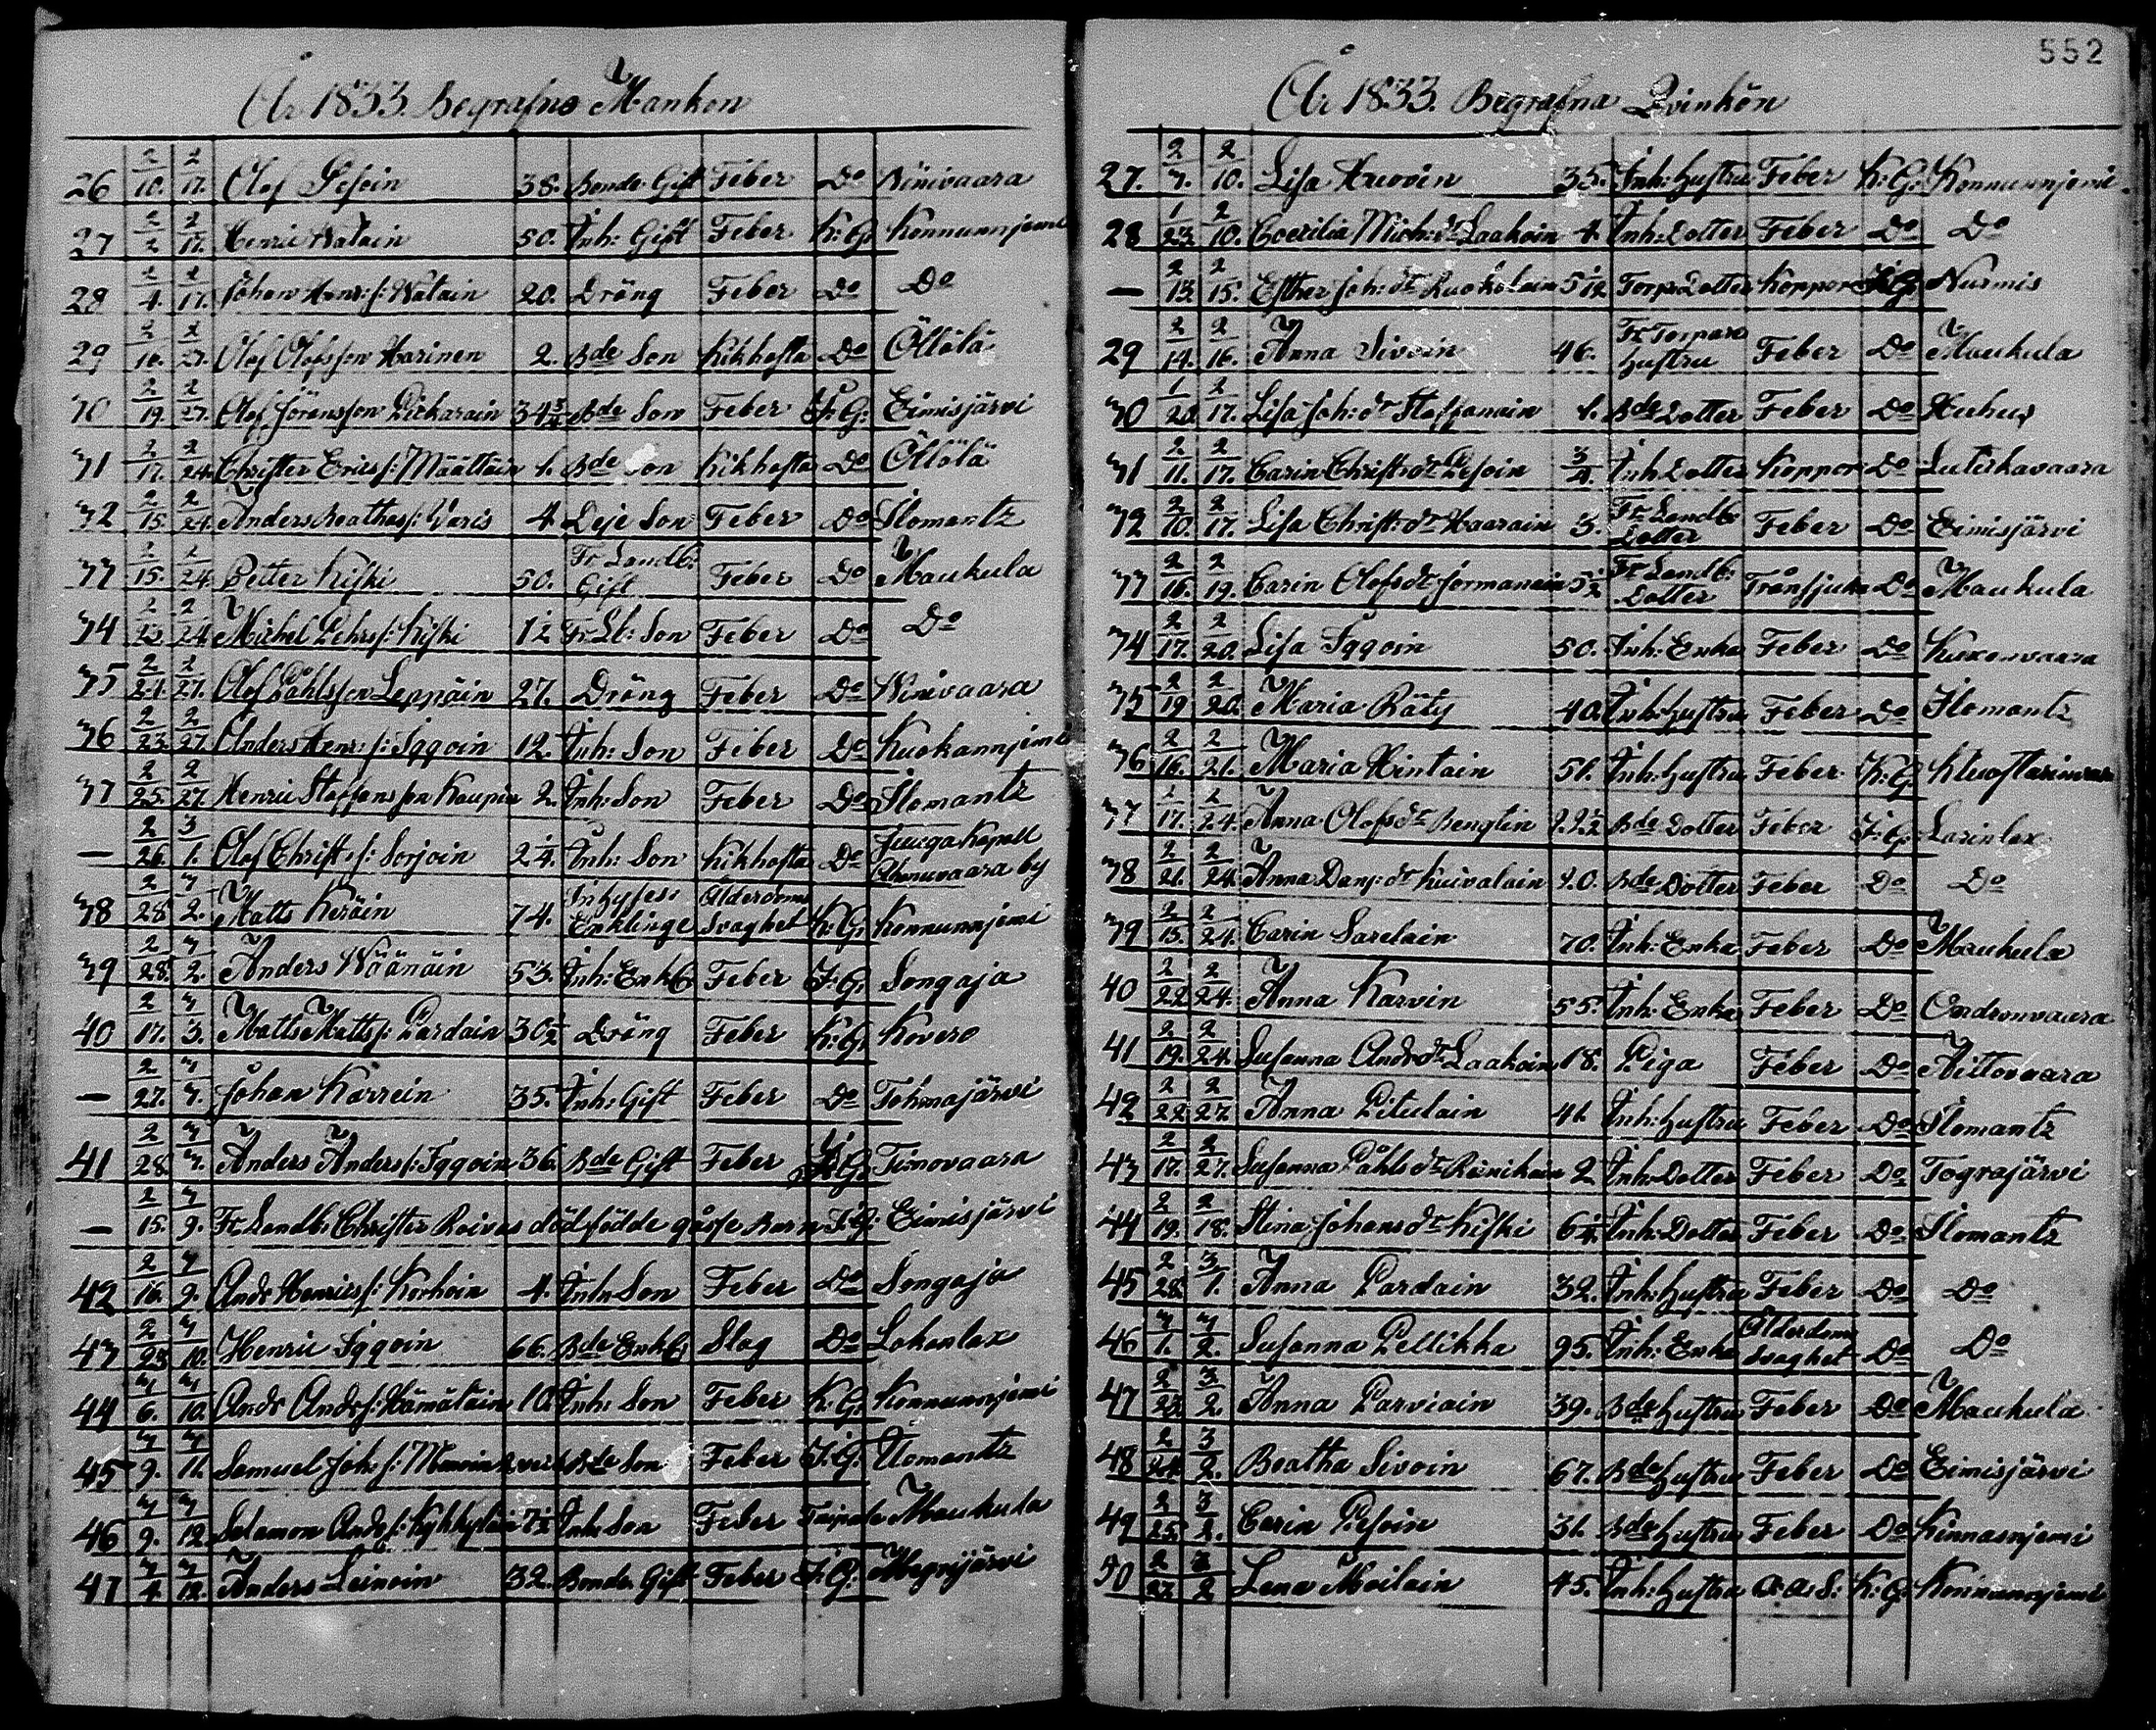 552
År 1833. Begrafne Mankön
26 2/10. 2/17. Olof Pesoin 38. Bonde Gift Feber Do Winivaara
27 2/2 2/17. Henric Watain 50. Inh: Gift Feber K: G: Konnunnjemi
28 2/4. 2/17. Johan Henr: s: Watain 20. Dräng Feber Do Do
29 2/10. 2/27. Olof Olofsson Harinen 2. Bde Son Kikhosta Do Öllölä
30 2/19. 2/27. Olof Göransson Pickarain 3 4 3/4 Bde Son Feber F: G: Eimisjärvi
31 2/17. 2/24. Christer Erics s: Määttäin 1. Bde Son Kikhosta Do Öllölä
32 2/15. 2/24. Anders Beathas s: Varis 4. Deje Son Feber Do Ilomantz
33 2/15. 2/24. Petter Kiski 50. Fr Landb: Gift Feber Do Maukula
34 2/23. 2/24. Michel Pehrs s: Kiski 12 Fr Lb: Son Feber Do Do
35 2/21. 2/27. Olof Påhlsson Leppäin 27. Dräng Feber Do Winivaara
36 2/23. 2/27. Anders Henr: s: Iggoin 12. Inh: Son Feber Do Kuokannjemi
37 2/25. 2/27. Henric Staffansson Kaupin 2. Inh: Son Feber Do Ilomantz
— 2/26. 3/1. Olof Christ: s: Sorjoin 2 1/4. Inh: Son Kikhosta Do Juuga Kapell Ahmuvaara by
38 2/28. 3/2. Matts Keräin 74. Inhyses Enklinge Ålderdoms Svaghet K: G: Konnunnjemi
39 2/28. 3/2. Anders Wäänäin 53. Inh: Enkl: Feber F: G: Songaja
40 2/17. 3/3. Matts Matts s: Pardain 30 1/2 Dräng Feber K: G: Kovero
— 2/27. 3/3. Johan Karrein 35. Inh: Gift Feber Do Tohmajärvi
41 2/28. 3/3. Anders Anders s: Iggoin 36. Bde Gift Feber F: G: Timovaara
— 2/15. 3/9. Fr. Landb: Christer Roivas dödfödde gåsse Barn F: G: Eimisjärvi
42 2/16. 3/9. Andr Henrics s: Korhoin 4. Inh: Son Feber Do Songaja
43 2/23 3/10. Henric Iggoin 66. Bde Enkl: Slag Do Lohanlax
44 3/6. 3/10. Andr Andr s: Hämäläin 10. Inh: Son Feber K: G: Konnunnjemi
45 3/9. 3/11. Samuel Joh s: Mmoin 2 vec: Bde Son Feber F: G. Ilomantz
46 3/9. 3/12 Salamon Andr s: Kykkyläin 7 1/2 Inh: Son Feber Taipale Maukula
47 3/4. 3/12. Anders Leinoin 32. Bonde Gift Feber F: G: Megrijärvi
År 1833. Begrafna Qvinkön
27. 2/7. 2/10. Lisa Huovin 35. Inh: Hustru Feber K: G: Konnunnjemi
28 1/23. 2/10. Coecilia Mich: dr Laakoin 4. Inh: Dotter Feber Do Do
— 2/13. 2/15. Esther Joh: dr Ruokolain 5/12 Torp: Dotter Koppor F: G: Nurmis
29 2/14. 2/16. Anna Sivoin 46. Fr Torpare Hustru Feber Do Maukula
30 1/28 2/17. Lisa Joh: dr Staffanain 1. Bde Dotter Feber Do Huhus
31 2/11. 2/17. Carin Christ: dr Pesoin 3/4. Inh: Dotter Koppor Do Lutikavaara
32 2/10. 2/17. Lisa Christ: dr Haarain 3. Fr Landb: Dotter Feber Do Eimisjärvi
33 2/16. 2/19. Carin Olofs dr Jormanain 5 1/2 Fr Landb: Dotter Trånsjuka Do Maukula
34 2/17. 2/20. Lisa Iggoin 50. Inh: Enka Feber Do Kuxenvaara
35 2/19 2/20. Maria Räty 40. Inh: Hustru Feber Do Ilomantz
36 2/16. 2/21. Maria Hintain 51. Inh: Hustru Feber K: G:
37 2/17. 2/24. Anna Olofs dr Benglin 22 1/2 Bde Dotter Feber F: G: Larinlax
38 2/21. 2/24. Anna Dan s: dr Kuivalain 10. Bde Dotter Feber Do Do
39 2/15. 2/24. Carin Sarelain 70. Inh: Enka Feber Do Maukula
40 2/22 2/24. Anna Karvin 55. Inh: Enka Feber Do Ondronvaara
41 2/19. 2/24. Susanna Andr dr Laakoin 18. Piga Feber Do Aittovaara
42 2/22 2/27. Anna Pitulain 41. Inh: Hustru Feber Do Ilomantz
43 2/17. 2/27. Susanna Påhls dr Reinikain 2 Inh: Dotter Feber Do Tograjärvi
44 2/19. 2/18. Stina Johans dr Kiski 6 1/4. Inh: Dotter Feber Do Ilomantz
45 2/28. 3/1. Anna Pardain 32. Inh: Hustru Feber Do Do
46 3/1. 3/2. Susanna Pellikka 95. Inh: Enka Ålderdoms Svaghet Do Do
47 2/23. 3/2. Anna Parviain 39. Bde Hustru Feber Do Maukula
48 2/24 3/2. Beatha Sivoin 67. Bde Hustru Feber Do Eimisjärvi
49 2/25. 3/2. Carin Pesoin 31. Bde Hustru Feber Do Kinnasnjemi
50 2/27. 3/2 Lena Moilain 45. Inh: Hustru K: G: Konnunnjemi